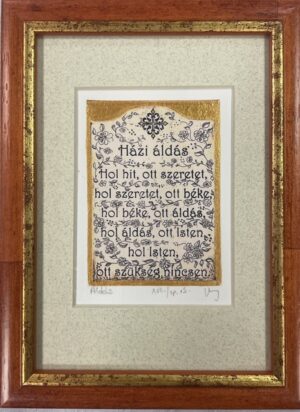 Házi áldás
Hol hit, ott szeretet,
hol szeretet, ott béke,
hol béke, ott áldás,
hol áldás, ott Isten,
hol Isten,
ott szükség nincsen.